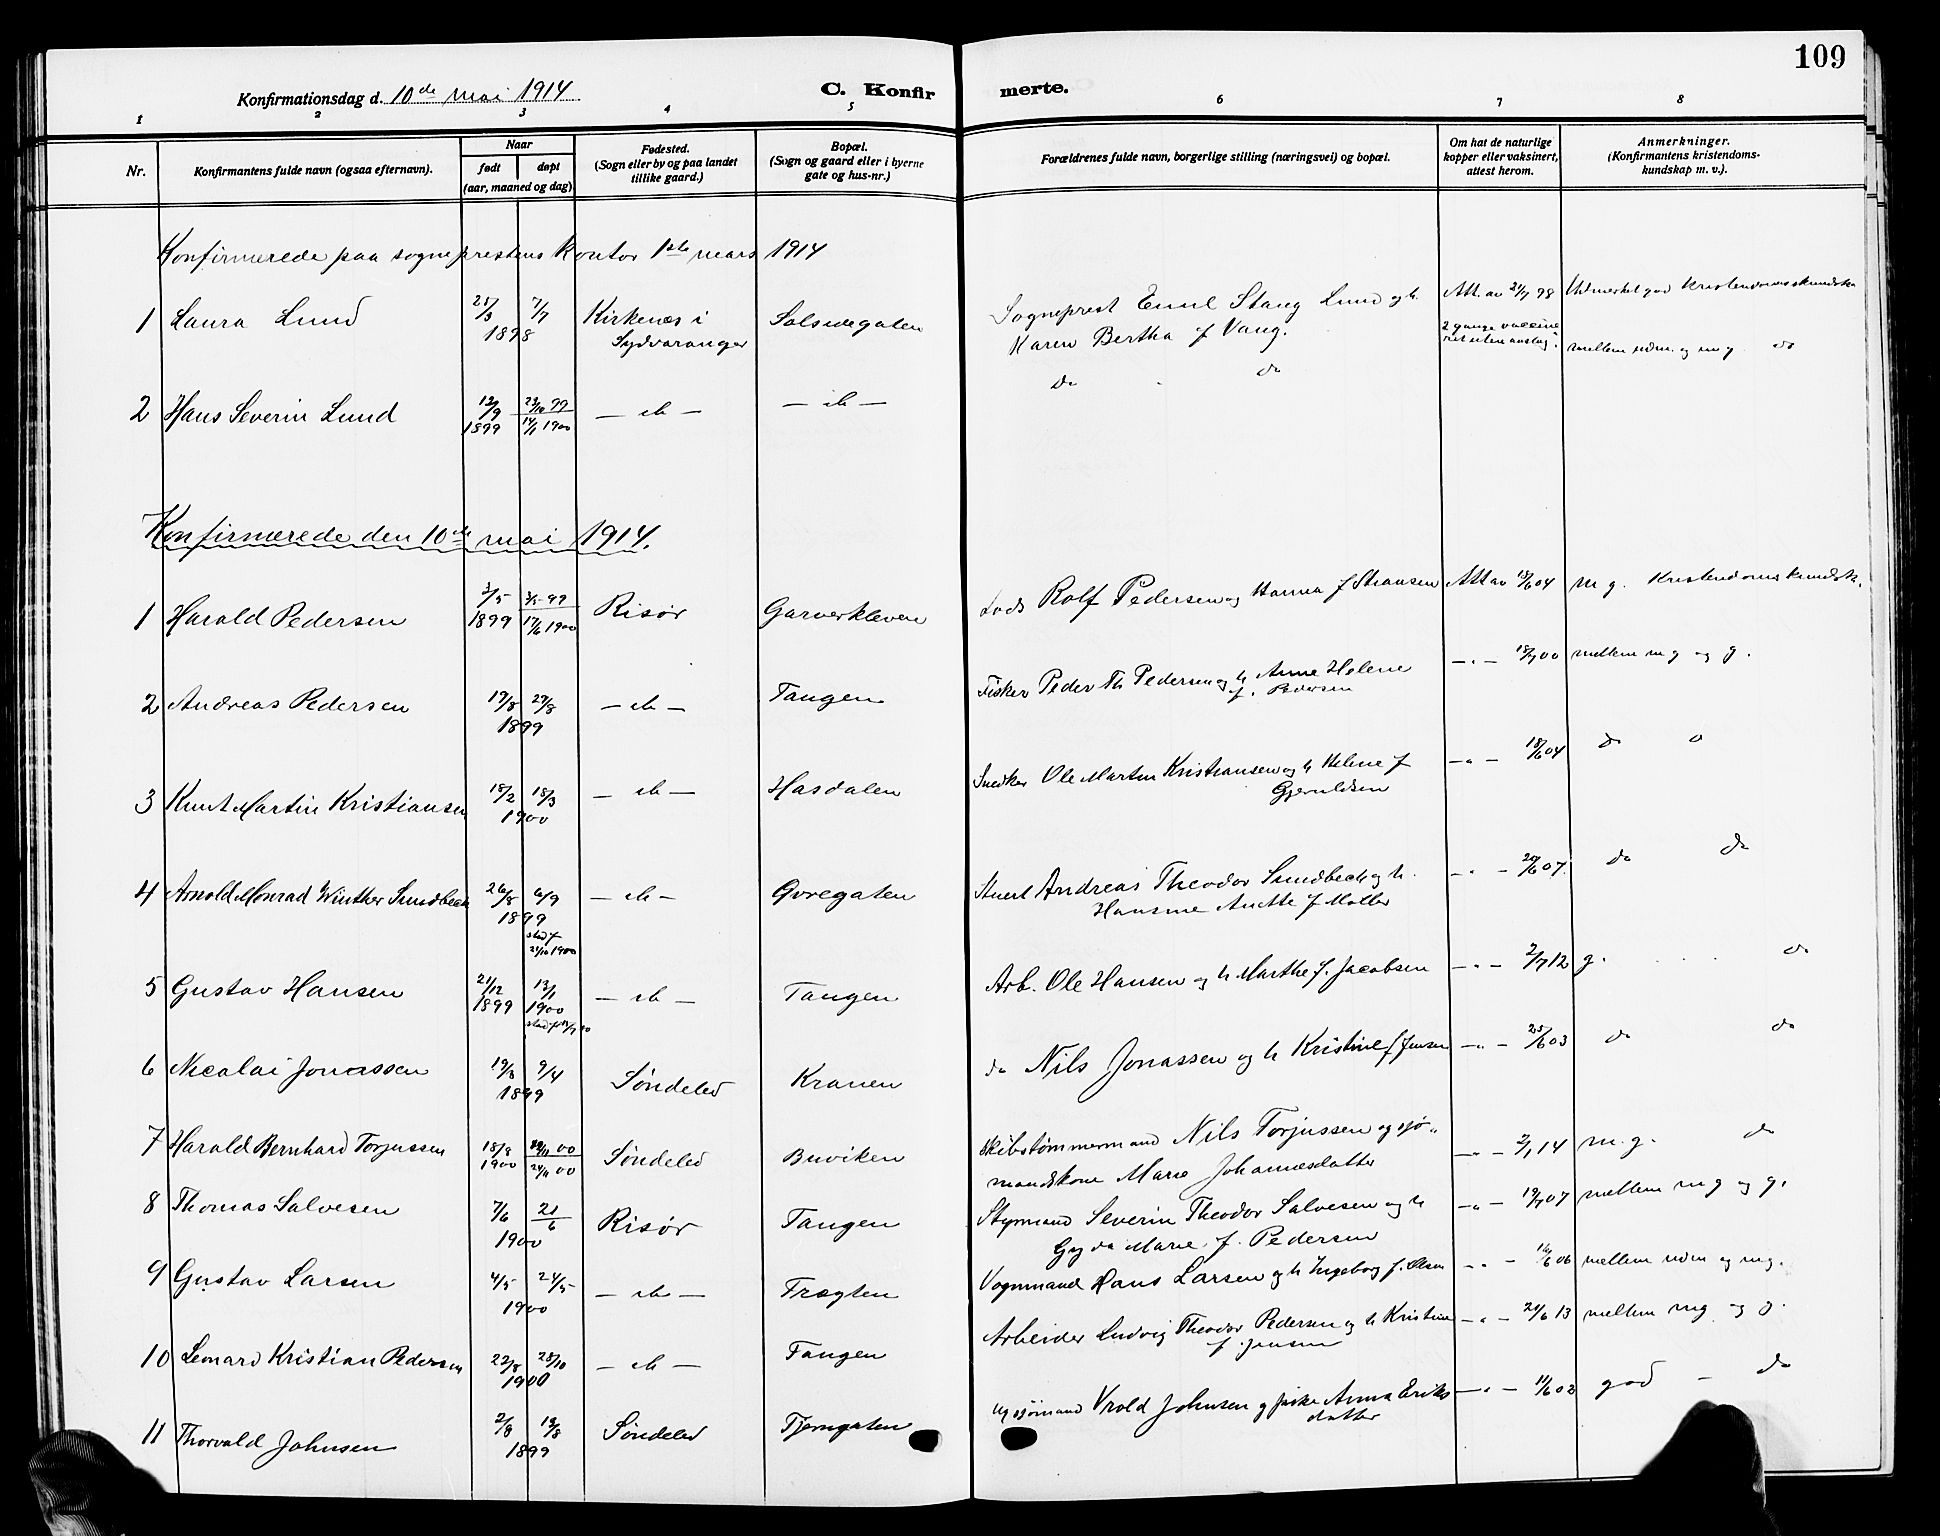 109
Konfirmationsdag d. 10de mai 1914
C. Konfirmerte.
1 2 3 4 5 6 7 8
Nr.
Konfirmantens fulde navn (ogsaa efternavn).
Naar
født
døpt
(aar, maaned og dag)
Fødested.
(Sogn eller by og paa landet
tillike gaard.)
Bopæl.
(Sogn og gaard eller i byerne
gate og hus-nr.)
Forældrenes fulde navn, borgerlige stilling (næringsvei) og bopæl.
Om hat de naturlige
kopper eller vaksinert,
attest herom.
Anmerkninger.
(Konfirmantens kristendoms-
kundskap m. v.).
Konfirmerede paa sogneprestens kontor 1ste mars 1914
1 Laura Lund 25/3 7/7 Kirkenes i Solsidegaten Sogneprest Emil Stang Lund og h. Att. av 21/7 98 Udmerket god Kristendomskundskap
1898 Sydvaranger Karen Bertha f Vang. 2 gange vaccineret uten anslag.
2 Hans Severin Lund 12/9 23/10 99 — do — — do — do do mellem udm. og m g. do
1899 14/1 1900
Konfirmerede den 10de mai 1914.
1 Harald Pedersen 3/5 3/5 99 Risør Garverkleven Lods Rolf Pedersen og Hanna f Skransen Att av 18/6 04 m g. Kristendomskundsk.
1899 17/6 1900
2 Andreas Pedersen 19/8 29/8 — do — Tangen Fisker Peder Th Pedersen og h Anne Helene — " — 18/7 00 mellem m g og g.
1899 f. Pedersen
3 Knut Martin Kristiansen 18/2 18/3 — do — Hasdalen Snedker Ole Martin Kristiansen og h Helene f — " — 18/6 04 do o
1900 Gjeruldsen
4 Arnold Monrad Winther Sundbeck 26/8 6/9 — do — Øvregaten Stuert Andreas Theodor Sundbeck og h. — " — 20/6 07. do do
1899 Hansine Anette f Møller
stadf
21/10 1900
5 Gustav Hansen 21/12 13/1 — do — Tangen Arb. Ole Hansen og h Marthe f. Jacobsen — " — 2/7 12 g. do
1899 1900
6 Nicolai Jonassen 19/3 9/4 Søndeled Kranen do Nils Jonassen og h Kristine f Jensen — " — 25/6 03 do do
1899
7 Harald Bernhard Torjussen 18/8 00 Søndeled Buviken Skibstømmermand Nils Torjussen og sjø- — " — 2/1 14 m. g. do
1900 24/11 00 mandskone Marie Johannesdatter
8 Thomas Salvesen 7/6 21/6 Risør Tangen Styrmand Severin Theodor Salvesen og h — " — 19/7 07 mellem m g og g.
1900 Gyda Marie f. Pedersen
9 Gustav Larsen 4/5 24/5 — do — Tragten Vognmand Hans Larsen og h Ingeborg f. Olsen — " — 14/6 06 mellem udm og m g.
1900
10 Leonard Kristian Pedersen 22/8 28/10 — do — Tangen Arbeider Ludvig Theodor Pedersen og h Kristine — " — 21/6 13 mellem mg og g.
1900 f. Jensen
11 Thorvald Johnsen 2/8 13/8 Søndeled Tjerngaten Ug sjømand Vrold Johnsen og pike Anna Eriks — " — 11/6 02 god — do
1899 datter